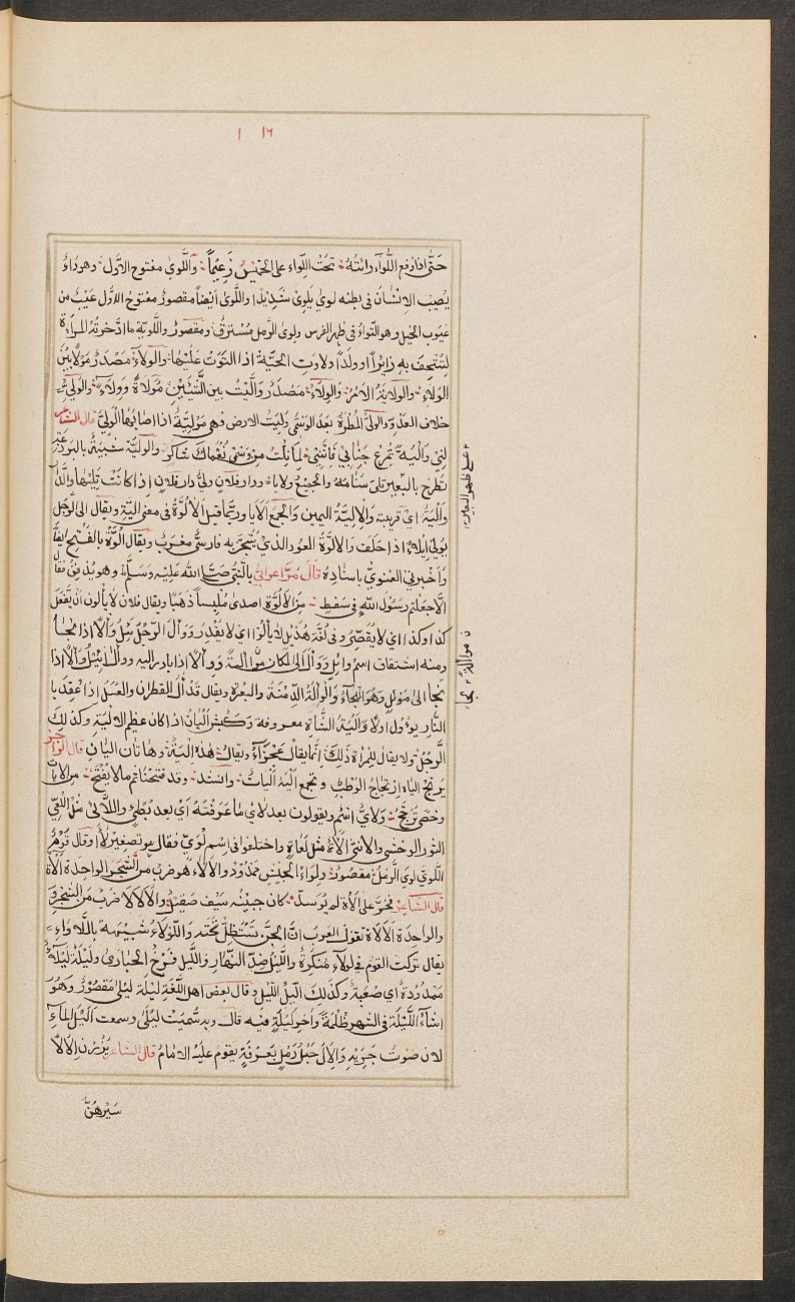 ١٦ ١
حَتَّى اذا رفع اللّواء رائته تحت اللّواء على الخميس زَعيمًا واللّوى مفتوح الاوّل وهو داءٌ
يُصيب الانسان فى بطنه لوى يلوى شديدًا واللّوى أيضاً مقصورٌ مفتوح الاوّل عَيْبٌ من
عيوب الخيل وهو التواءٌ فى ظهر الفرس ولوى الرمل مُسْتَرقّ ومقصورٌ واللّويّة ما ادّخرته المراءة
لتتحف به زائراً او ولداً ولاوت الحيّة اذا التوت عليها والولاء مصدر مولًا بيّن
الولاء والولاية الامر والولاء مصدر واليت بين الشيئين مُوالاة ووِلاءً والولىّ
خلاف العدوّ والولىّ المطرة بعد الوسمى وليت الارض فهى موليّة اذا اصابها الولىّ قال الشاعر
لِنى ولية تمرع جنابى فانّنى لما نلت من وسمى نعماك شاكر والوليّة شبيهة بالبرذعة
تطرح بالبعير تلى سنامه والجميع ولايا ودار فلان ولىّ دار فلان اذا كانت تليها
والية اى قريبة والاليّة اليمين والجمع الالايا وربّما قيل الالوّة فى معنى اليّة ويقال الى الرجل
يولى ايلاءً اذا حلف والالوّة العود الذى يُتبخّر به فارسىّ معرّب ويقال الوّة بالفتح ايضًا
واخبرنى الغنوىّ باسناده قال مرّ اعرابىّ بالنّبى صلى الله عليه وسلم وهو يُدفن فقال
الا جعلتم رسول الله فى سفطٍ من الالوّة اصدى مُلبساً ذهبًا ويقال فلان لا يألون ان يفعل
كذا وكذا اى لا يُقصّر وفى لغة هذيل لا يألوا اى لا يقدر ووأل الرجل يئل وألًا اذا نجا
ومنه اشتقاق اسم وائل ووأل الى المكان موالةً ووألًا اذا بادر اليه ووأل يئل وألًا اذا
نجا الى موئلٍ وهو الملجأ والوالة الدّمنة والبعرة ويقال قد أل القطران والعسل اذا عقد با
النّار يؤول اولًا والية الشاة معروفة وكبش اليان اذا كان عظيم الالية وكذلك
الرجل ولا يقال للمرأة ذلك انّما يقال عجزاء ويقال هذه الية وهاتان اليان قال الرّاجز
يرتجّ الياه ارتجاج الوطب وتجمع الية اليات وانشد وقد فتحنا ثم ما لا يُفتح من الايات
وخصى ترجّح ولأىٌ اسم ويقولون بعد لاىٍ ما عرفته اى بعد بطئٍ واللأى مثل اللعى
الثور الوحشى والانثى لاة مثل لعاةٍ واختلفوا فى اسم لوىّ فقال هو تصغير لأىٍ وقال قومٌ
اللّوى لوى الرّمل مقصور ولواء الجيش ممدود والالاء هو ضرب من الشجر الواحدة الاة
قال الشاعر فخرّ على الالاءة لم يوسّد كان جبينه سيف صقيل والالالا ضرب من الشجر
والواحدة الالاة تقول العرب انّ الجنّ تستظلّ تحته واللّولاء شبيهة باللّاواء
يقال تركت القوم فى لولاء منكرة واللّيل ضدّ النهار واللّيل فرخ الحبارى وليلة ليلاء
ممدودة اى صعبة وكذلك اليل اللّيل وقال بعض اهل اللغة ليلة ليلى مقصور وهو
اشدّ اللّيلة فى الشهر ظلمة وآخر ليلة فيه قال وبه سُمّيت ليلى وسمعت اليل المآء
لان صوت جريه والال حبل رمل بعرفة يقوم عليه الامام قال الشاعر يزرن الالًا
سَيْرهُنَّ
على ظهر البعير